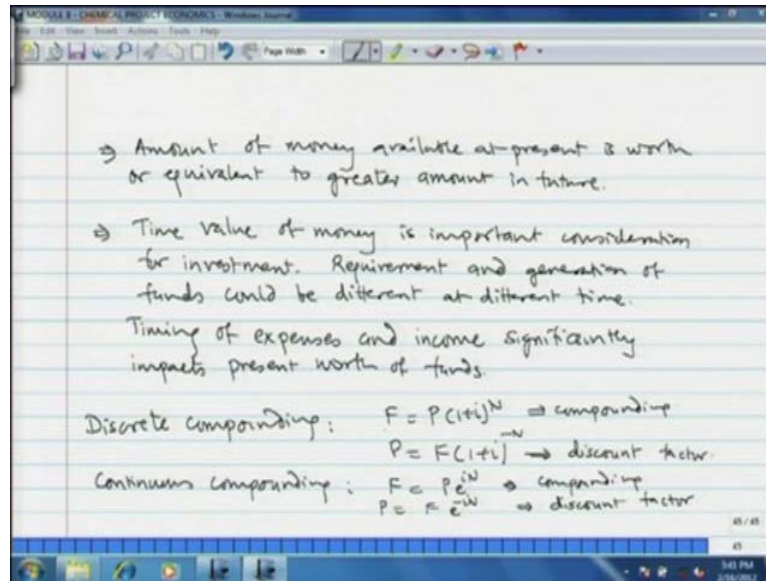 MODULE 9 - CHEMICAL PROJECT ECONOMICS - Windows Journal
File Edit View Insert Actions Tools Help
Page Width
⇒ Amount of money available at present is worth
or equivalent to greater amount in future.
⇒ Time value of money is important consideration
for investment. Requirement and generation of
funds could be different at different time.
Timing of expenses and income significantly
impacts present worth of funds.
Discrete compounding: F = P(1+i)^N ⇒ compounding
P = F(1+i)^-N → discount factor.
Continuous compounding: F = Pe^iN ⇒ compounding
P = F e^-iN ⇒ discount factor
45/45
45
5:41 PM